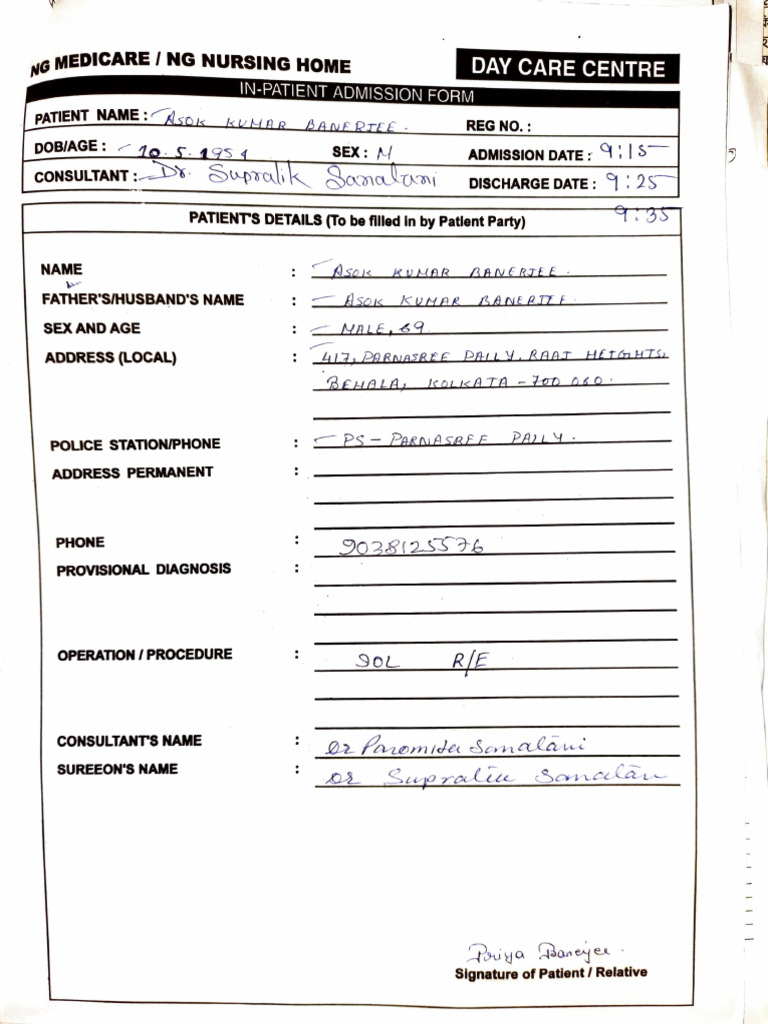 NG MEDICARE / NG NURSING HOME
DAY CARE CENTRE
IN-PATIENT ADMISSION FORM
PATIENT NAME : ASOK KUMAR BANERJEE. REG NO. :
DOB/AGE : 10.5.1954 SEX : M ADMISSION DATE : 9:15
CONSULTANT : Dr. Supralik Samalani DISCHARGE DATE : 9:25
PATIENT'S DETAILS (To be filled in by Patient Party) 9:35
NAME : ASOK KUMAR BANERJEE.
FATHER'S/HUSBAND'S NAME : ASOK KUMAR BANERJEE.
SEX AND AGE : MALE, 69
ADDRESS (LOCAL) : 417, PARNASREE PALLY, RAAJ HEIGHTS,
BEHALA, KOLKATA - 700 060.
POLICE STATION/PHONE : PS - PARNASREE PALLY.
ADDRESS PERMANENT :
PHONE : 9038125576
PROVISIONAL DIAGNOSIS :
OPERATION / PROCEDURE : IOL R/E
CONSULTANT'S NAME : Dr Paromita Samalani
SUREEON'S NAME : Dr
Priya Banerjee.
Signature of Patient / Relative